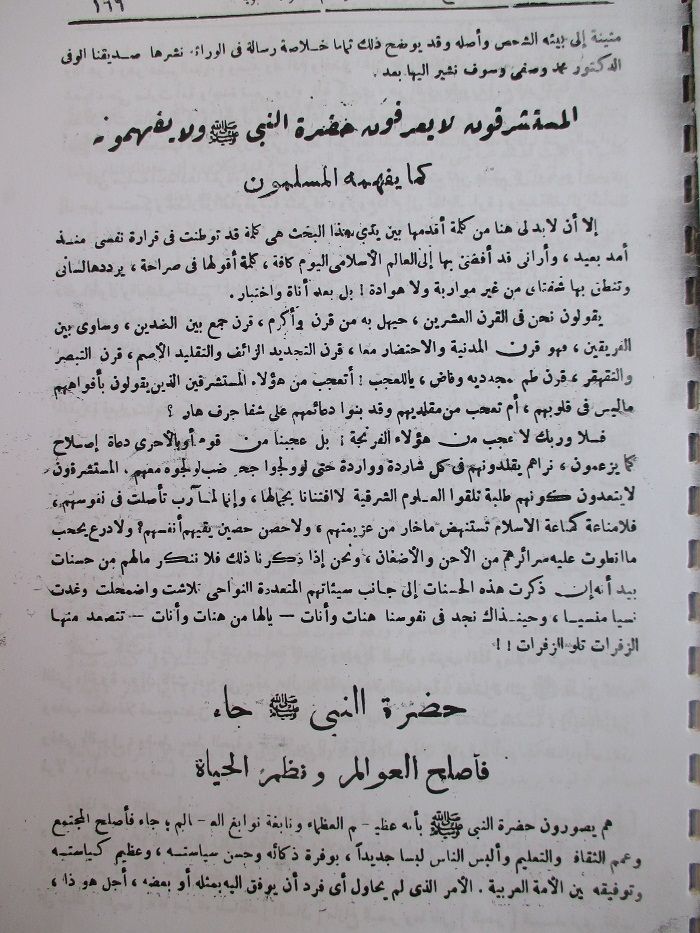 ١٦٩
مثينة إلى بيئه الشخص وأصله وقد يوضح ذلك تماما خلاصة رسالة فى الوراثة نشرها صديقنا الوفى
الدكتور محمد وصفى وسوف نشير اليها بعد .
المستشرقون لا يعرفون حضرة النبى ﷺ ولا يفهمونه
كما يفهمه المسلمون
إلا أن لابد لى هنا من كلمة أقدمها بين يدى هذا البحث هى كلمة قد توطنت فى قرارة نفسى منذ
أمد بعيد ، وأرانى قد أفضى بها إلى العالم الأسلامى اليوم كافة ، كلمة أقولها فى صراحة ، يرددها لسانى
وتنطق بها شفتاى من غير مواربة ولا هوادة ! بل بعد أناة واختبار .
يقولون نحن فى القرن العشرين ، حيهل به من قرن وأكرم ، قرن جمع بين الضدين ، وساوى بين
الفريقين ، فهو قرن المدنية والاحتضار معا ، قرن التجديد الزائف والتقليد الأصم ، قرن التبصر
والتقهقر ، قرن طم مجدديه وفاض ، ياللعجب ! أتعجب من هؤلاء المستشرقين الذين يقولون بأفواههم
ماليس فى قلوبهم ، أم تعجب من مقلديهم وقد بنوا دعائمهم على شفا جرف هار ؟
فلا وربك لا عجب من هؤلاء الفرنجة ! بل عجبنا من قوم أو بالأحرى دعاة إصلاح
كما يزعمون ، نراهم يقلدونهم فى كل شاردة وواردة حتى لو ولجوا جحر ضب لولجوه معهم . المستشرقون
لا يتعدون كونهم طلبة تلقوا العلوم الشرقية لا افتنانا بجمالها ، وإنما لمآرب تأصلت فى نفوسهم ،
فلا مناعة كمناعة الاسلام تستنهض ماخار من عزيمتهم ، ولا حصن حصين يقيهم أنفسهم ؟ ولا درع يحجب
ما انطوت عليه سرائرهم من الأحن والأضغان ، ونحن إذا ذكرنا ذلك فلا ننكر مالهم من حسنات
بيد أنه إن ذكرت هذه الحسنات إلى جانب سيئاتهم المتعددة النواحى تلاشت واضمحلت وغدت
نسيا منسيا ، وحينذاك نجد فى نفوسنا هنات وأنات — يالها من هنات وأنات — تتصعد منها
الزفرات تلو الزفرات ! !
حضرة النبى ﷺ جاء
فأصلح العوالم ونظم الحياة
هم يصورون حضرة النبى ﷺ بأنه عظيم العظماء ونابغة نوابغ العالم جاء فأصلح المجتمع
وعمم الثقافة والتعليم وألبس الناس لبسا جديداً ، بوفرة ذكائه وحسن سياسته ، وعظيم كياسته
وتوفيقه بين الأمة العربية . الأمر الذى لم يحاول أى فرد أن يوفق اليه بمثله أو بعضه ، أجل هو ذا ،